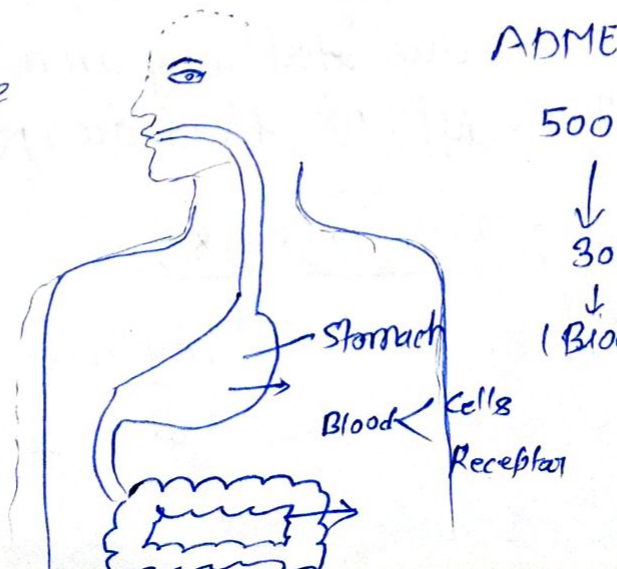 ADME
500
30
Stomach
Blood
Cells
Receptor